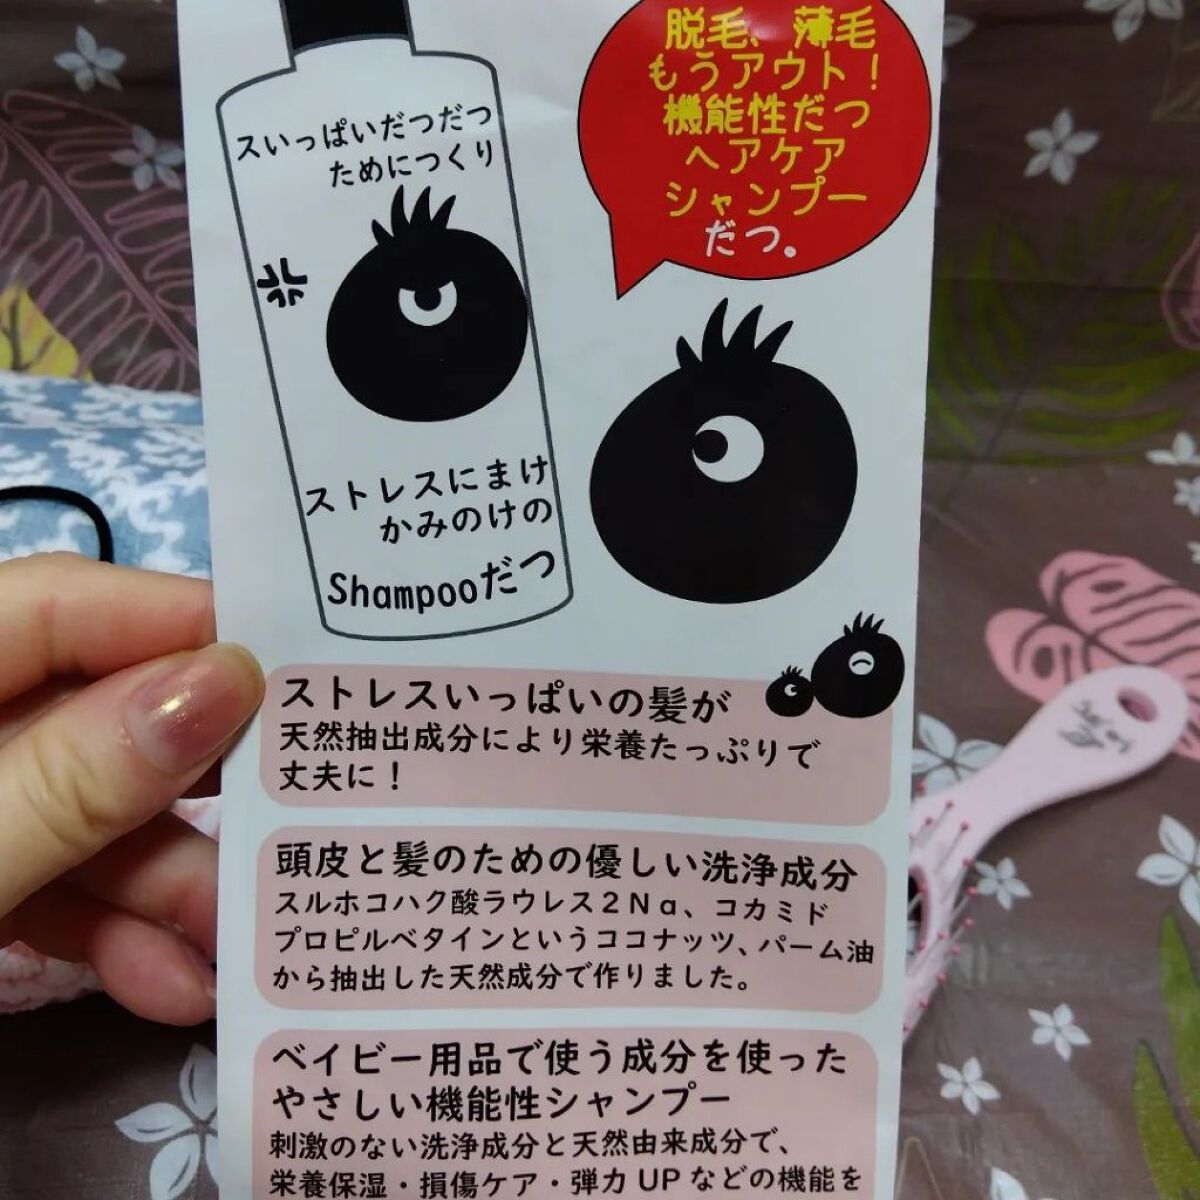 スいっぱいだつだつ
ためにつくり
ストレスにまけ
かみのけの
Shampooだつ
脱毛、薄毛
もうアウト!
機能性だつ
ヘアケア
シャンプー
だつ。
ストレスいっぱいの髪が
天然抽出成分により栄養たっぷりで
丈夫に!
頭皮と髪のための優しい洗浄成分
スルホコハク酸ラウレス2Na、コカミド
プロピルベタインというココナッツ、パーム油
から抽出した天然成分で作りました。
ベイビー用品で使う成分を使った
やさしい機能性シャンプー
刺激のない洗浄成分と天然由来成分で、
栄養保湿・損傷ケア・弾力UPなどの機能を